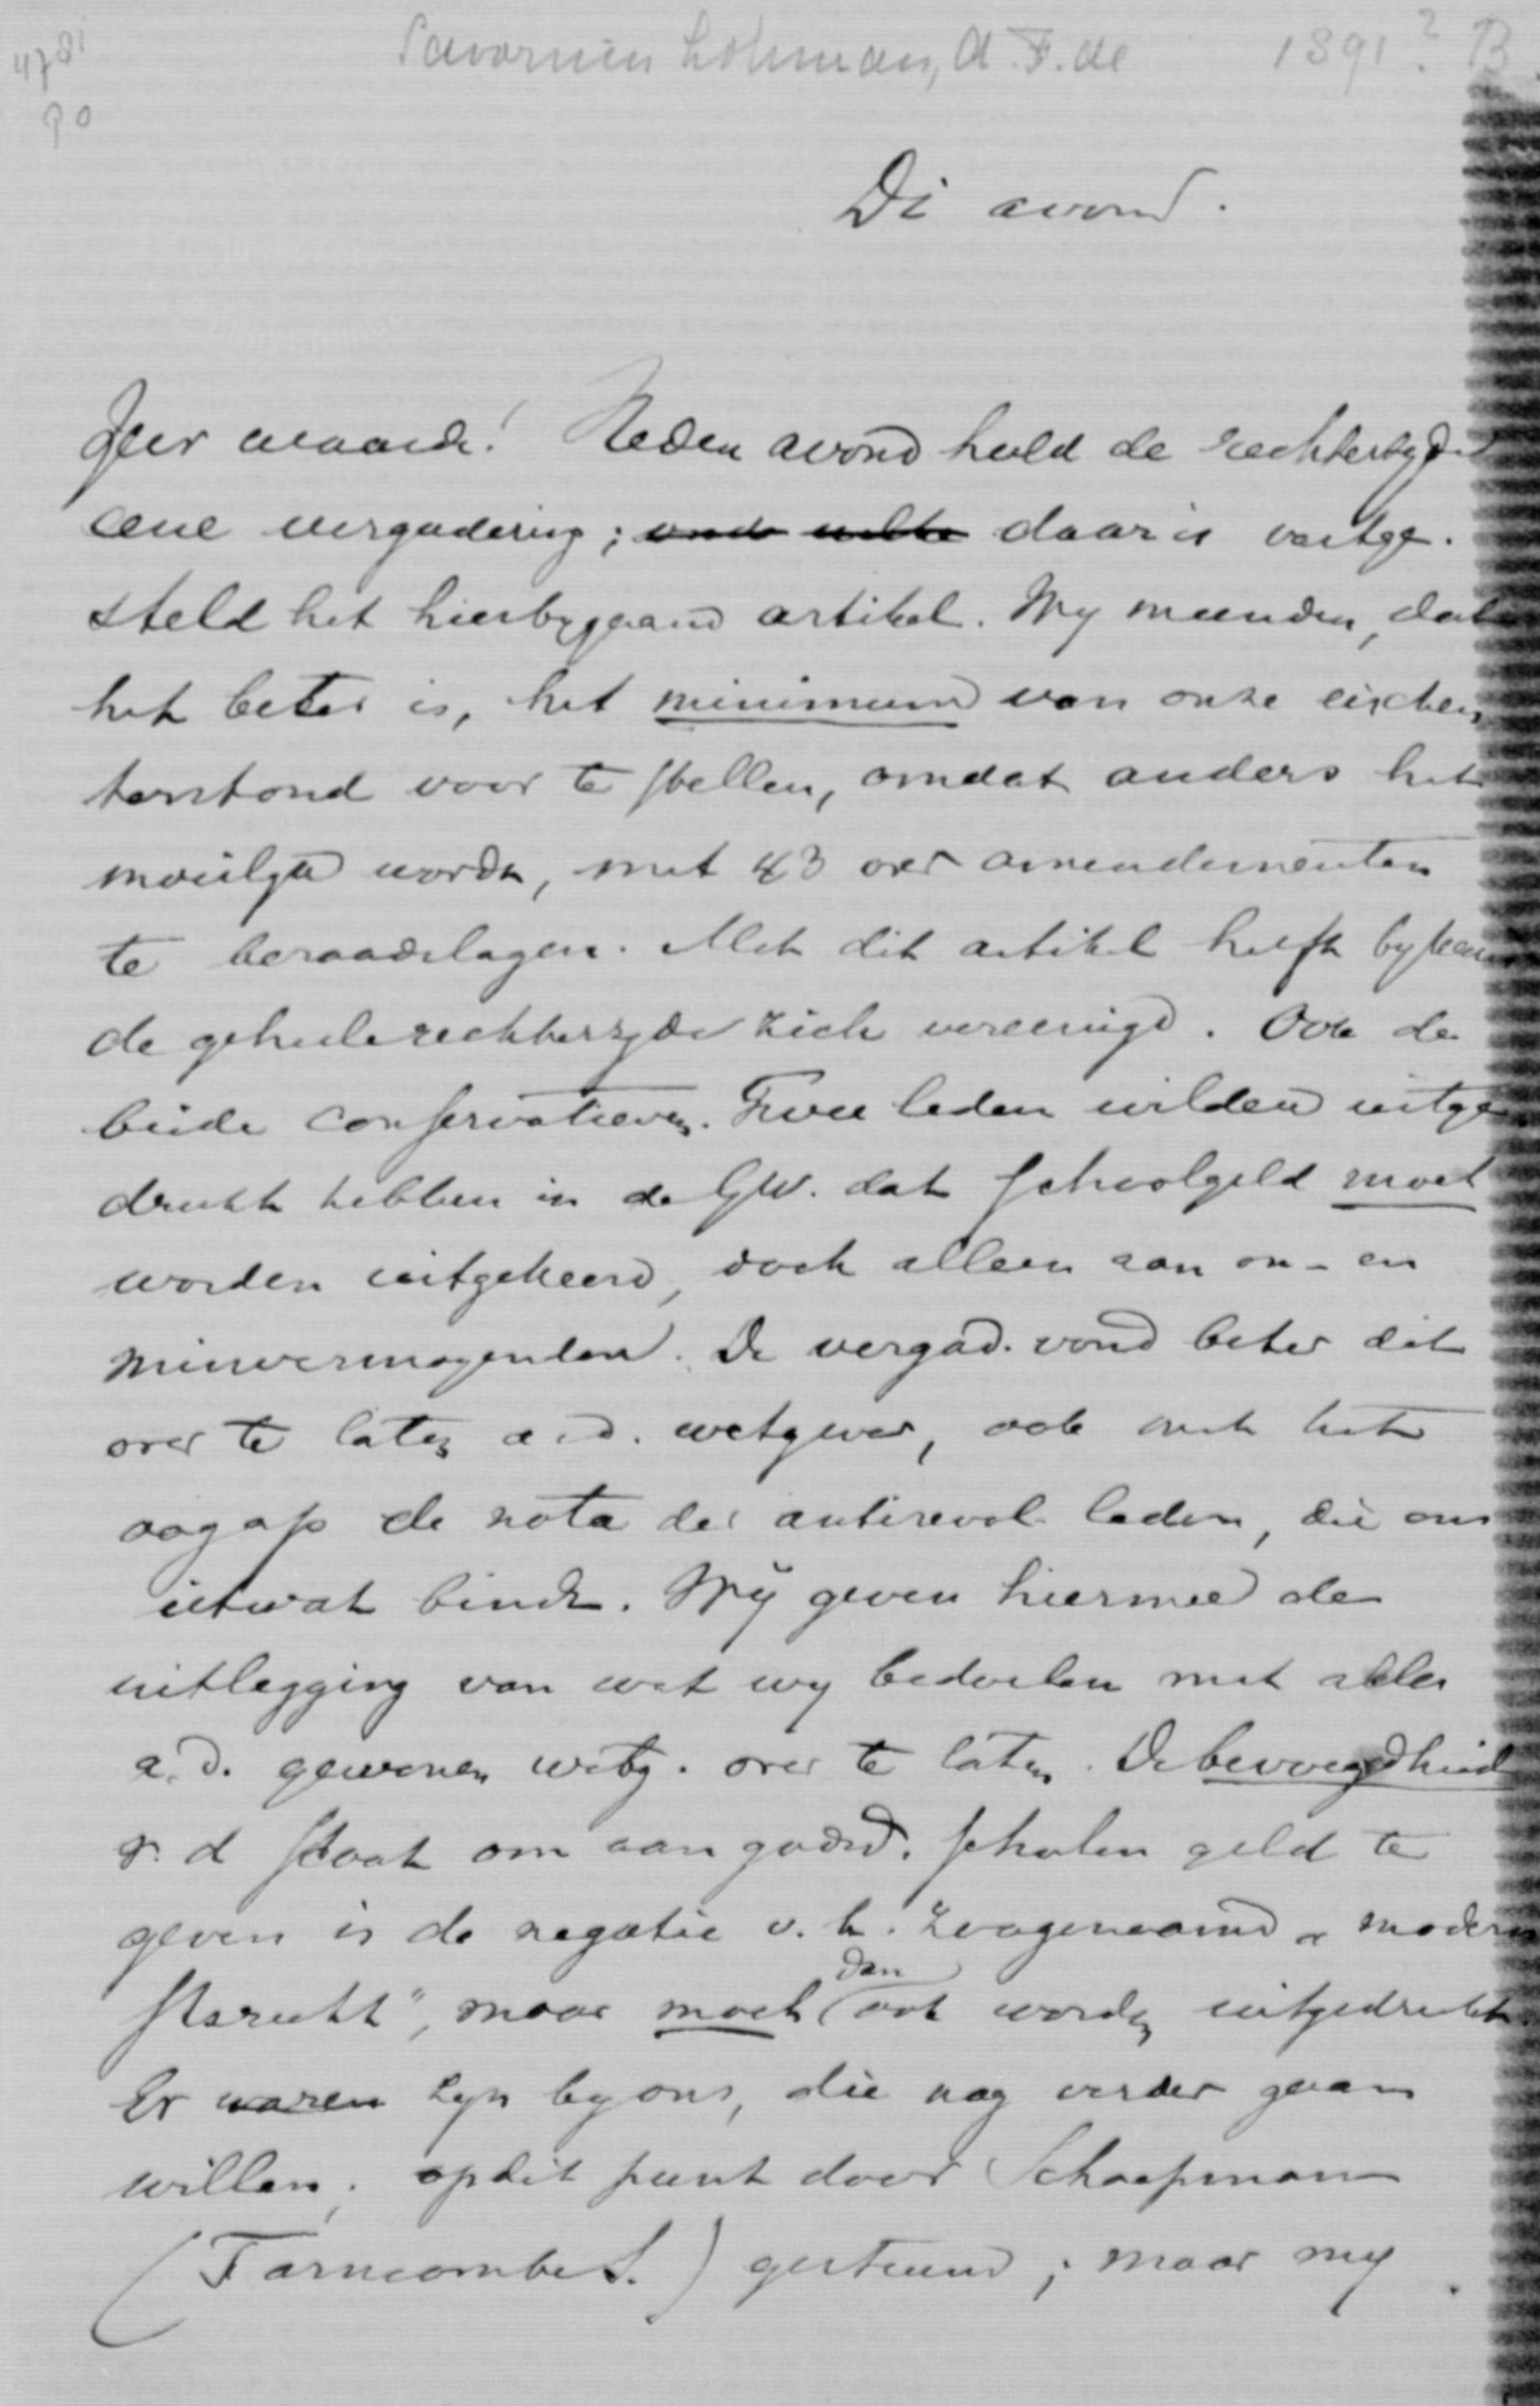 4781
90
Savornin Lohman, A.F. de 1891? B
Di avond.
Zeer waarde! Heden avond hield de rechterzyde
eene vergadering; daar is vastge-
steld het hierbygaand artikel. Wy meenden, dat
het beter is, het minimum van onze eischen
terstond voor te stellen, omdat anders het
moeilyk wordt, met 43 over amendementen
te beraadslagen. Met dit artikel heeft bykans
de geheele rechterzyde zich vereenigd. Ook de
beide conservatieven. Twee leden wilden uitge
drukt hebben in de GW. dat schoolgeld moet
worden uitgekeerd, doch alleen aan on- en
minvermogenden. De vergad. vond beter dit
over te laten a. d. wetgever, ook met het
oog op de nota der antirevol. leden, die ons
ietwat bindt. Wÿ geven hiermee de
uitlegging van wat wy bedoelen met alles
a. d. gewonen wetg. over te laten. De bevoegdheid
v. d staat om aan godsd. scholen geld te
geven is de negatie v. h. zoogenaamd „modern
stsrecht", maar moet dan ook worden uitgedrukt.
Er waren zyn by ons, die nog verder gaan
willen; op dit punt door Schaepman
(Farncombe S.) gesteund; maar my